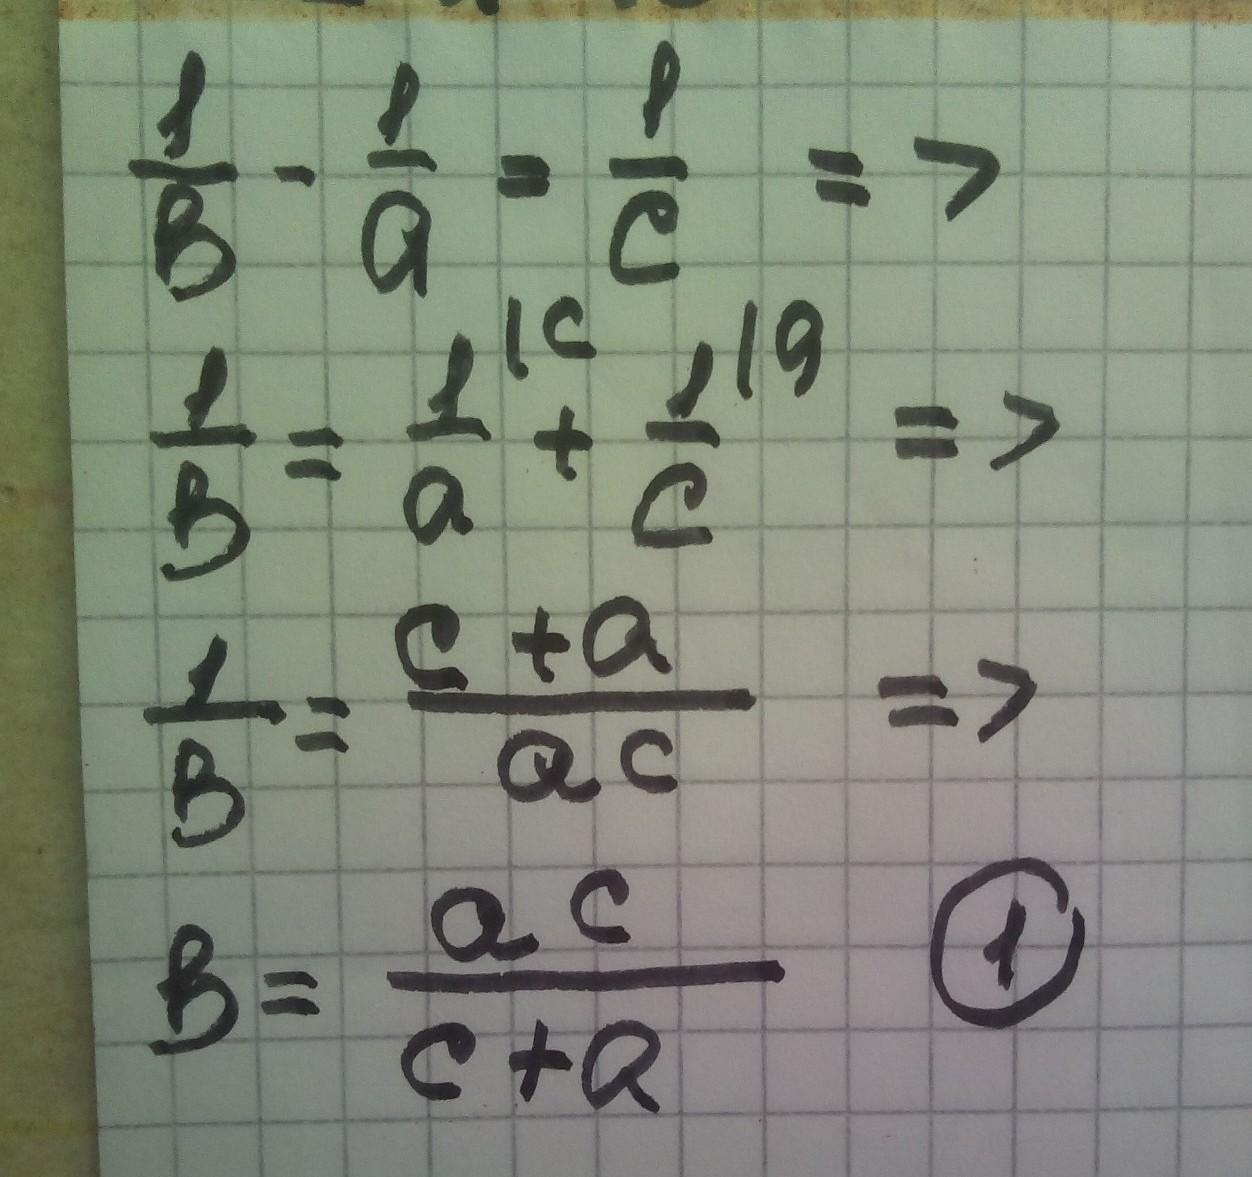 1/B - 1/a = 1/c =>
1/B = 1/a |c + 1/c |a =>
1/B = c + a / ac =>
B = ac / c + a 1